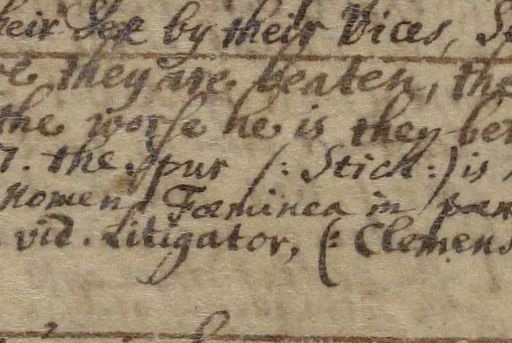 heir Sex by their Vices, S
they are beaten, the
the worse he is they be
7. the spur (: Stick :) is
Women Fæminea in par
vid. Litigator, (: Clemens